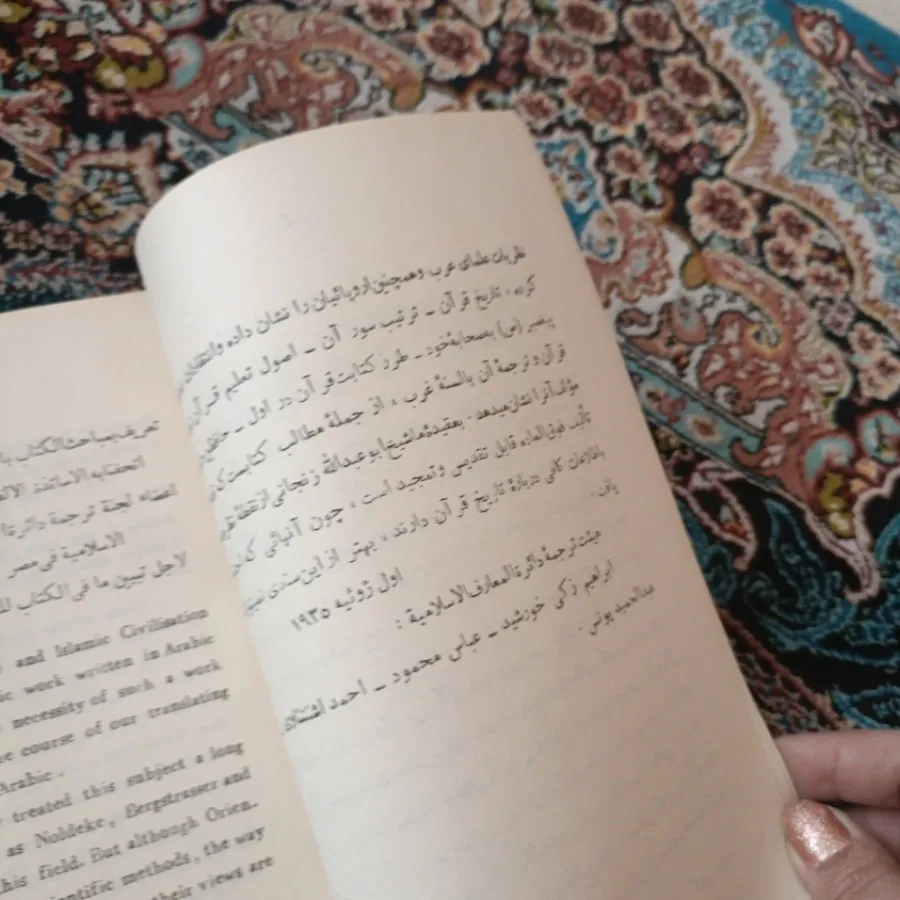 نظریات علمای عرب و همچنین اروپائیان را نشان داده و انتقادات
کرده، تاریخ قرآن ـ ترتیب سود آن ـ اصول تعلیم قرآن
پیغمبر (ص) بصحابهٔ خود ـ طرز کتابت قرآن در اول ـ
قرآن و ترجمهٔ آن بالسنهٔ غرب، از جملهٔ مطالب کتابست که
مؤلف آنرا نشان میدهد. بعقیدهٔ ما شیخ ابوعبدالله زنجانی از نقطهٔ نظر
تألیف فوق‌العاده قابل تقدیس و تمجید است، چون آنهائی که
باطلاعات کافی دربارهٔ تاریخ قرآن دارند، بهتر از این سندی
یافت.
اول ژوئیه ۱۹۳۵
هیئت ترجمهٔ دائرة المعارف الاسلامیة:
ابراهیم زکی خورشید ـ عباس محمود ـ احمد
عبدالحمید یونس.
تعریف بمباحث الکتاب
اتحفنا به الاساتذة
اعضاء لجنة ترجمة دائرة
الاسلامیة فی مصر
لاجل تبیین ما فی الکتاب
and Islamic Civilisation
work written in Arabic
necessity of such a work
course of our translating
Arabic.
treated this subject a long
as Noldeke, Bergstrasser and
this field. But although Orien-
scientific methods, the way
their views are